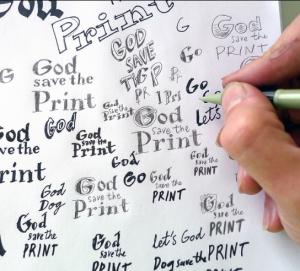 Print
G
God
save the
Print
GOD
SAVE
THE
PR
God
save the
PRINT
Go
God
save the
Print
God
God
save the
Print
God
save the
Print
Go
Let's
God
save the
Print
God
God
Dog
God
save the
Print
Go
God
save the
PRINT
God
save the
PRINT
God
save the
PRINT
God
save the
PRINT
God
save the
PRINT
Let's God
Dog save the PRINT